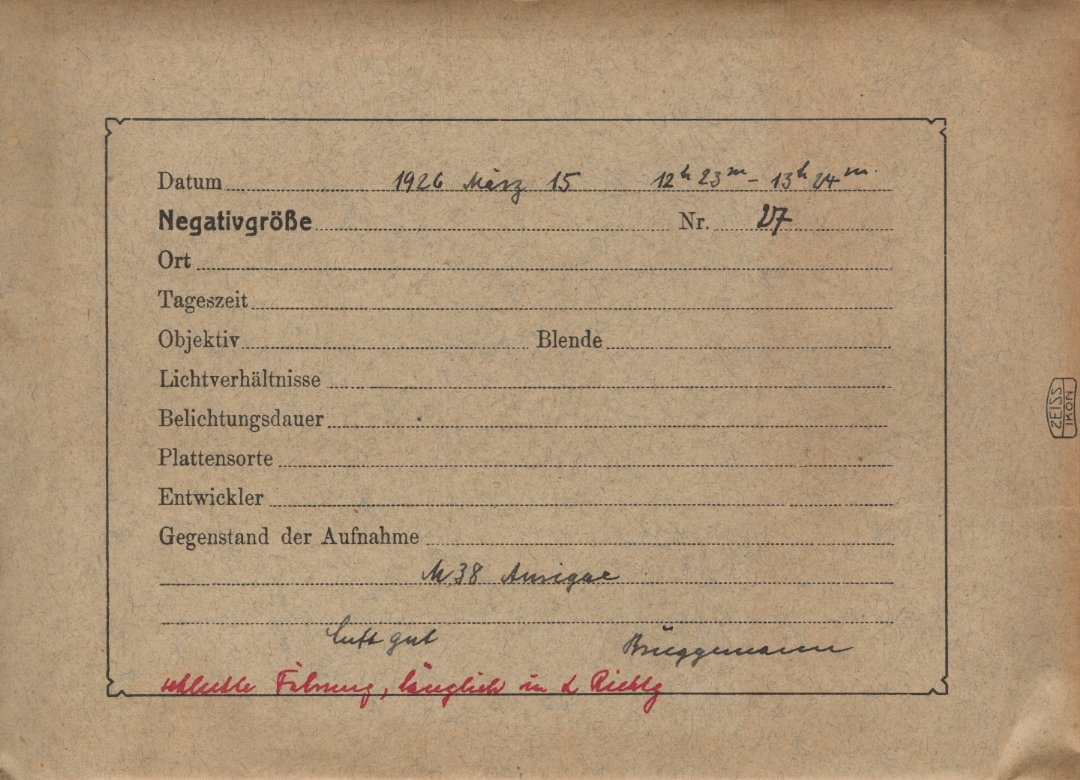 Datum 1926 März 15 12h 23m - 13h 24m
Negativgröße Nr. 27
Ort
Tageszeit
Objektiv Blende
Lichtverhältnisse
Belichtungsdauer
Plattensorte
Entwickler
Gegenstand der Aufnahme
M 38 Aurigae
Luft gut Brüggemann
schlechte Führung, länglich in α Richtg
ZEISS
IKON